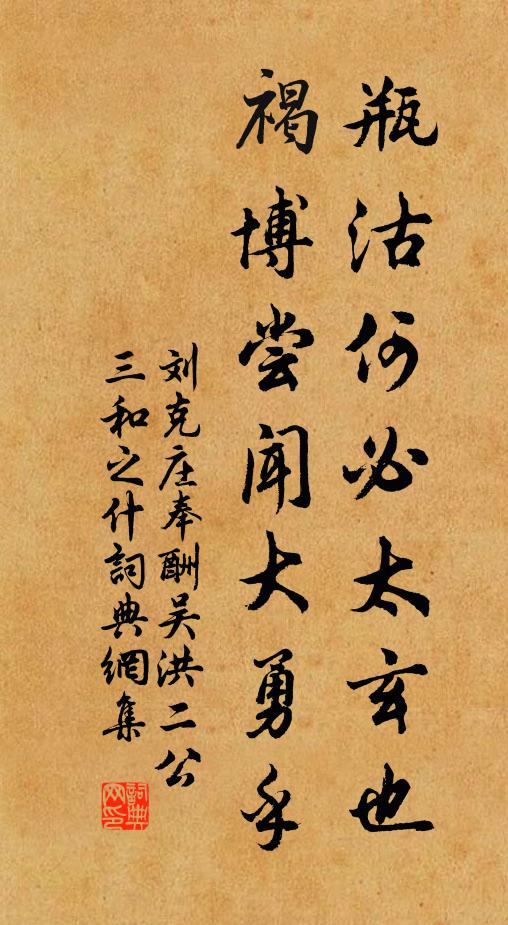 瓶沽何必太玄也
褐博尝闻大勇乎
刘克庄奉酬吴洪二公
三和之什詞典網集
詞典
网印